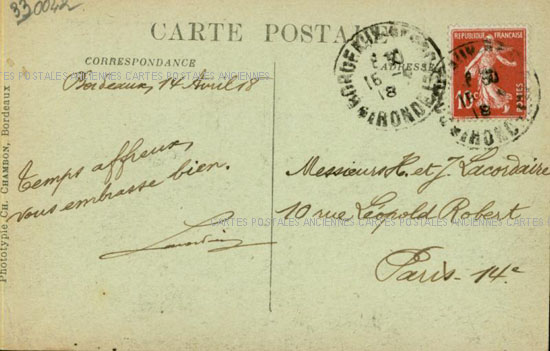 330042
CARTE POSTALE
CORRESPONDANCE
ADRESSE
RÉPUBLIQUE FRANÇAISE
10c
BORDEAUX
GIRONDE
15
18
CARTES POSTALES ANCIENNES CARTES POSTALES ANCIENNES
Bordeaux, 14 Avril 18
Temps affreux,
vous embrasse bien.
Messieurs H. et J. Lacordaire
10 rue Léopold Robert
Paris - 14e
CARTES POSTALES ANCIENNES CARTES POSTALES ANCIENNES
Phototypie CH. CHAMBON, Bordeaux